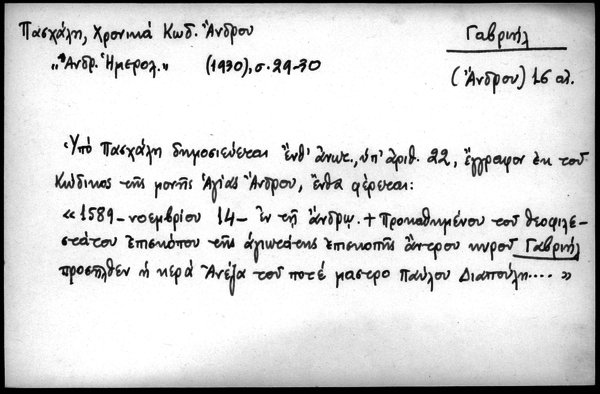 Πασχάλη, Χρονικά Κωδ. Ἄνδρου
Γαβριήλ
„Ἀνδρ. Ἡμερολ." (1930), σ. 29-30
(Ἄνδρου) 16 αἰ.
Ὑπό Πασχάλη δημοσιεύεται ἔνθ' ἀνωτ., ὑπ' ἀριθ. 22, ἔγγραφον ἐκ τοῦ
Κώδικος τῆς μονῆς Ἁγίας Ἄνδρου, ἔνθα φέρεται:
« 1589 - νοεμβρίου 14 - ἐν τῇ ἄνδρῳ. + Προκαθημένου τοῦ θεοφιλε-
στάτου ἐπισκόπου τῆς ἁγιωτάτης ἐπισκοπῆς ἄντρου κυροῦ Γαβριήλ
προσῆλθεν ἡ κερά Ἀνέζα τοῦ ποτέ μαστρο Παύλου Διαπούλη.... »